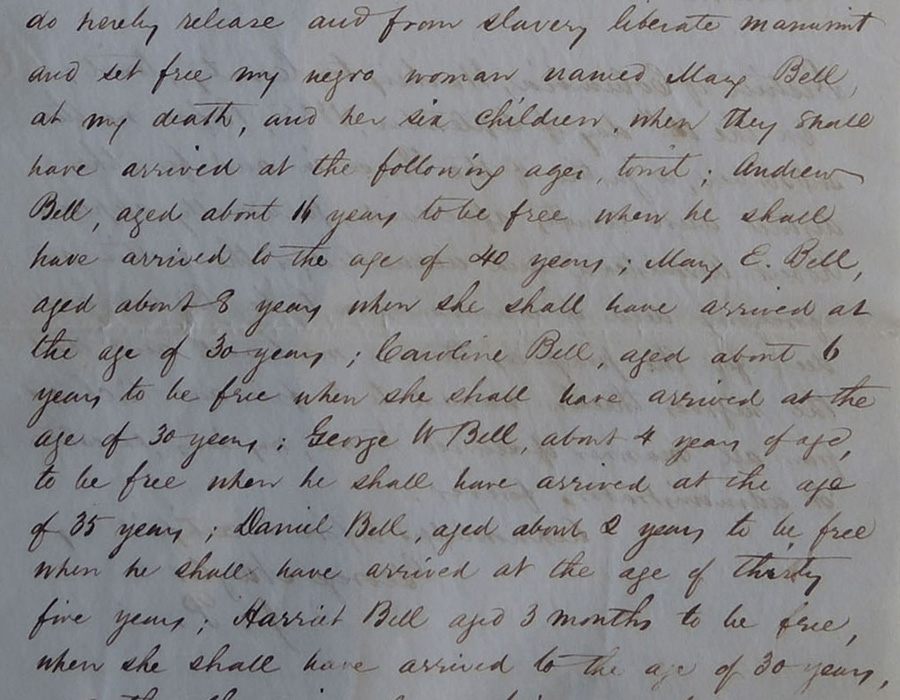 do hereby release and from slavery liberate manumit
and set free my negro woman named Mary Bell,
at my death, and her six children, when they shall
have arrived at the following ages, towit; Andrew
Bell, aged about 11 years to be free when he shall
have arrived to the age of 40 years; Mary E. Bell,
aged about 8 years when she shall have arrived at
the age of 30 years; Caroline Bell, aged about 6
years to be free when she shall have arrived at the
age of 30 years; George W Bell, about 4 years of age,
to be free when he shall have arrived at the age
of 35 years; Daniel Bell, aged about 2 years to be free
when he shall have arrived at the age of thirty
five years; Harriet Bell aged 3 months to be free,
when she shall have arrived to the age of 30 years,